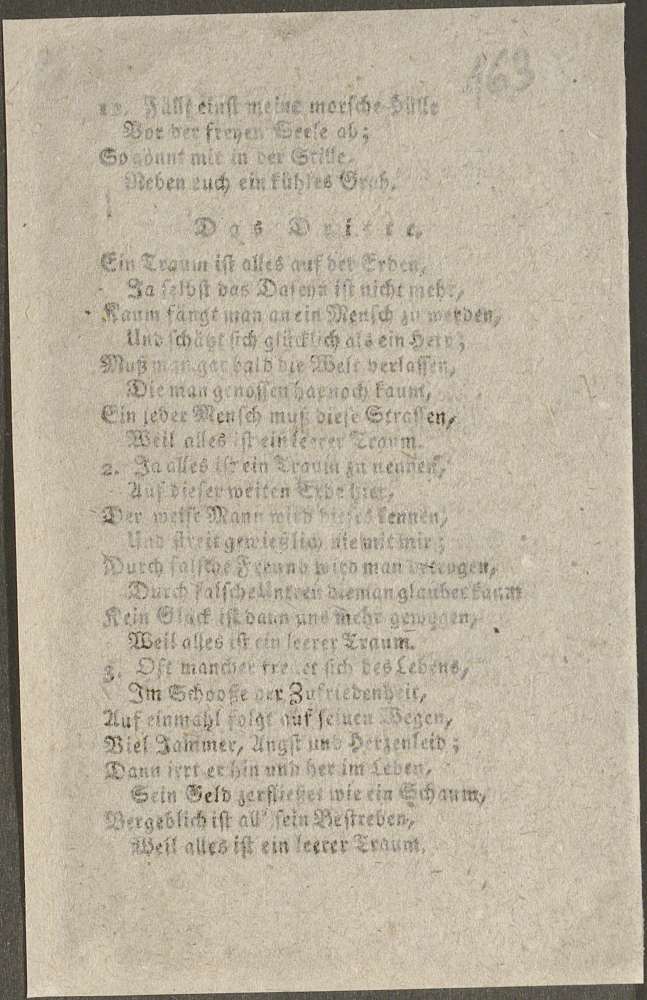 163
12. Fällt einst meine morsche Hülle
Vor der freyen Seele ab;
So gönnt mir in der Stille,
Neben euch ein kühles Grab.
Das Dritte.
Ein Traum ist alles auf der Erden,
Ja selbst das Daseyn ist nicht mehr,
Kaum fängt man an ein Mensch zu werden,
Und schätzt sich glücklich als ein Herr;
Muß man gar bald die Welt verlassen,
Die man genossen hat noch kaum,
Ein jeder Mensch muß diese Strassen,
Weil alles ist ein leerer Traum.
2. Ja alles ist ein Traum zu nennen,
Auf dieser weiten Erde hier,
Der weise Mann wird dieses kennen,
Und streit gewießlich nie mit mir;
Durch falsche Freund wird man betrogen,
Durch falsche Untreu die man glaubet kaum
Kein Glück ist dann uns mehr gewogen,
Weil alles ist ein leerer Traum.
3. Oft mancher freuet sich des Lebens,
Im Schooße der Zufriedenheit,
Auf einmahl folgt auf seinen Wegen,
Viel Jammer, Angst und Herzenleid;
Dann irrt er hin und her im Leben,
Sein Geld zerfließet wie ein Schaum,
Vergeblich ist all' sein Bestreben,
Weil alles ist ein leerer Traum.